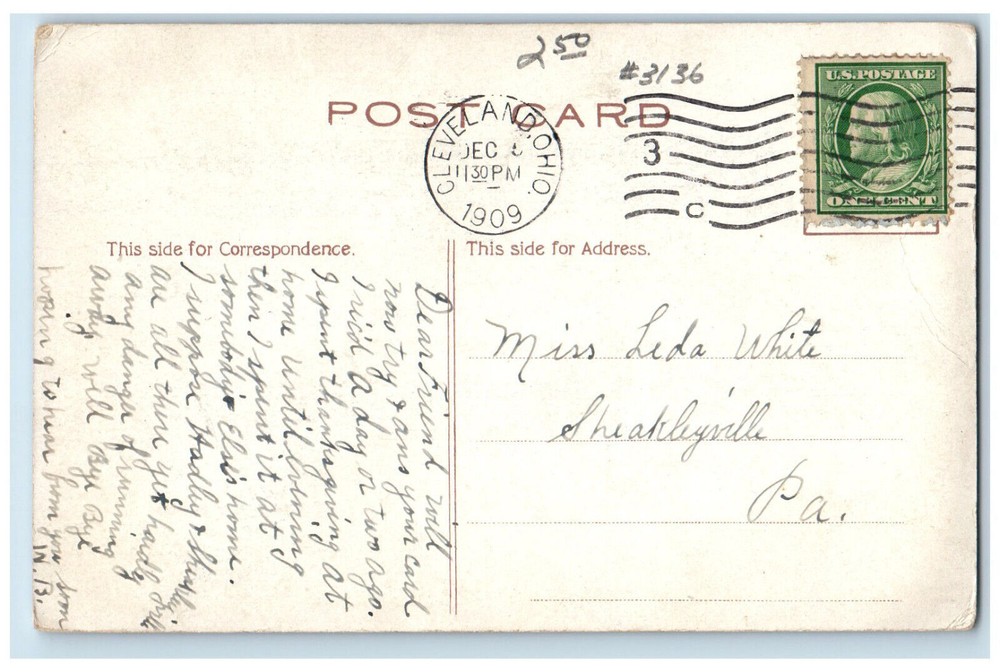 2 50
#3136
POST CARD
CLEVELAND, OHIO.
DEC 5
11 30 PM
1909
3
C
U.S. POSTAGE
ONE CENT
This side for Correspondence.
This side for Address.
Dear Friend will
now try & ans your card
I ric'd a day or two ago.
I spent thanksgiving at
home until evening
then I spent it at
somebody's Else's home.
I suppose Hadley & Sheakley
are all there yet hardly
any danger of running
away. Well Bye Bye
hoping to hear from you soon
W. B.
Miss Leda White
Sheakleyville
Pa.